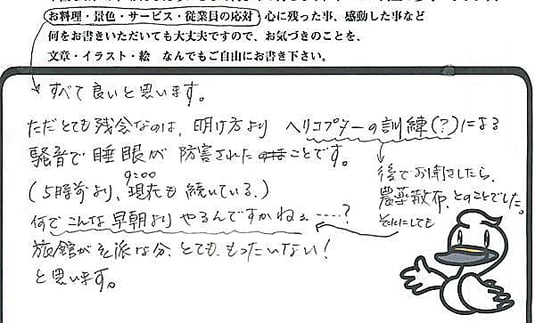 お料理・景色・サービス・従業員の応対 心に残った事、感動した事など
何をお書きいただいても大丈夫ですので、お気づきのことを、
文章・イラスト・絵 なんでもご自由にお書き下さい。
すべて良いと思います。
ただとても残念なのは、明け方より ヘリコプターの訓練(?)による
騒音で睡眠が 防害された ことです。
(5時前より、9:00現在も続いている。)
何でこんな早朝よりやるんですかねぇ……?
旅館が立派な分、とても、もったいない!
と思います。
後でお聞きしたら、
農薬散布、とのことでした。
それにしても